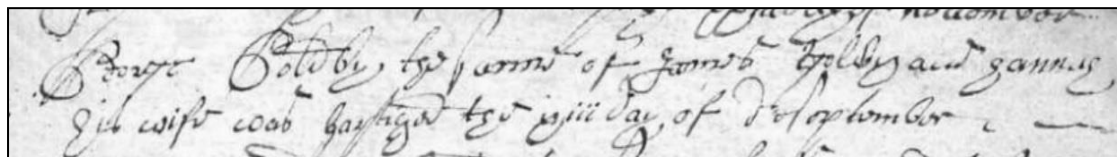 November
George Goldby the sonne of James Golby and hannah
his wife was baptized the xiii day of September